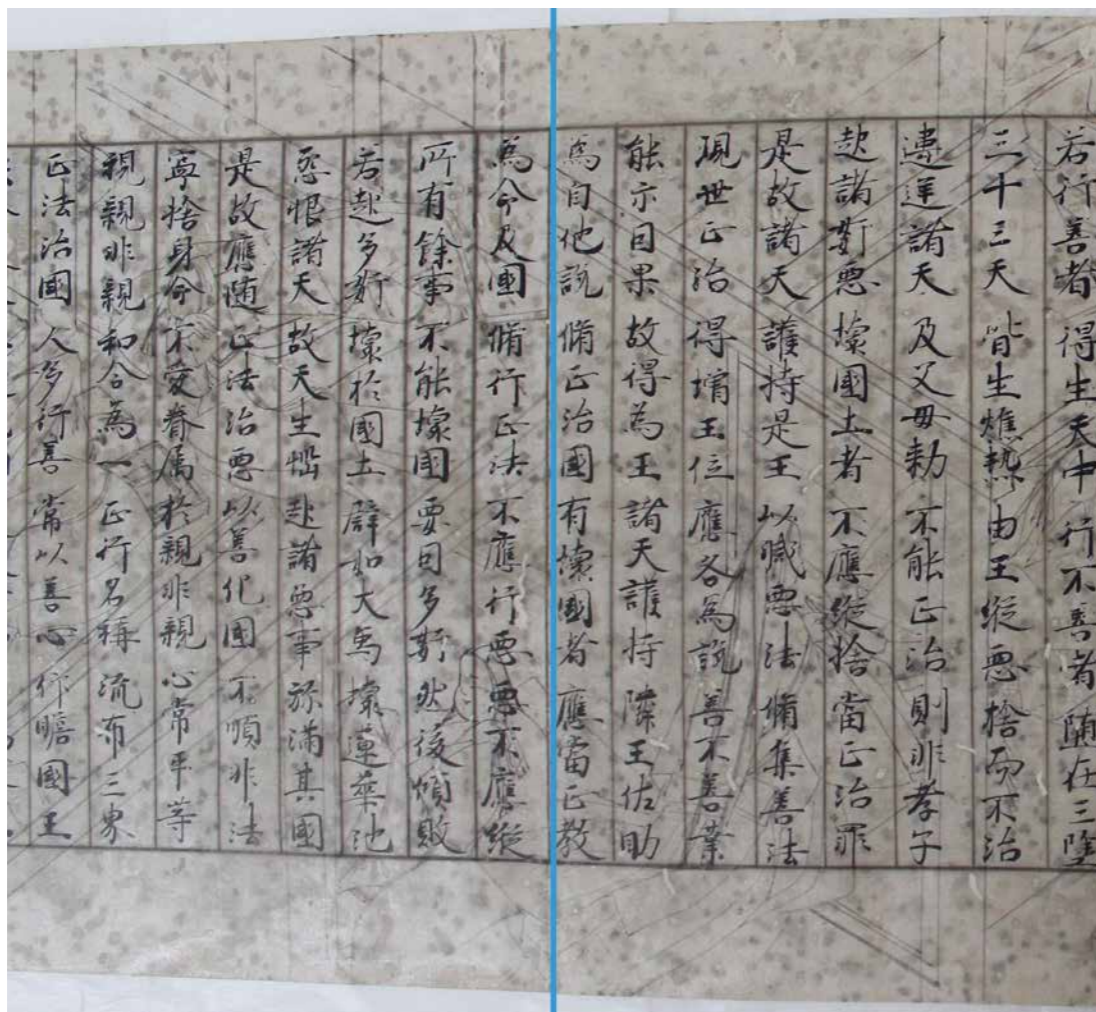 若行善者 得生天中 行不善者 随在三塗
三十三天 皆生燋熱 由王縱惡 捨而不治
違逆諸天 及父母勑 不能正治 則非孝子
起諸姧惡 壞國土者 不應縱捨 當正治罪
是故諸天 護持是王 以滅惡法 脩集善法
現世正治 得增王位 應各為說 善不善業
能示因果 故得為王 諸天護持 隣王佐助
為自他說 脩正治國 有壞國者 應當正教
為命及國 脩行正法 不應行惡 惡不應縱
所有餘事 不能壞國 要因多姧 然後傾敗
若起多姧 壞於國土 譬如大為 壞蓮華池
惡恨諸天 故天生惱 起諸惡事 弥滿其國
是故應随 正法治惡 以善化國 不順非法
寧捨身命 不愛眷属 於親非親 心常平等
視親非親 和合為一 正行名稱 流布三界
正法治國 人多行善 常以善心 仰瞻國王